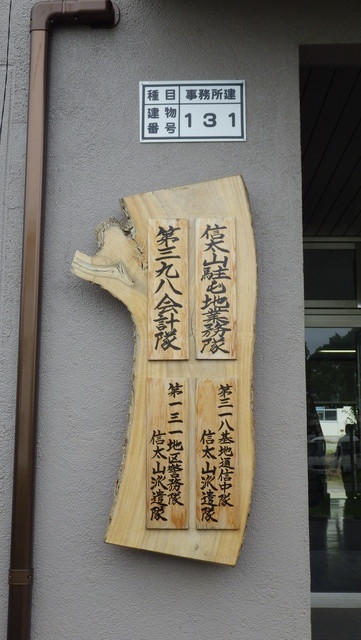 種目 事務所建
建物番号 131
信太山駐屯地業務隊
第三九八会計隊
第三一八基地通信中隊
信太山派遣隊
第一三一地区警務隊
信太山派遣隊